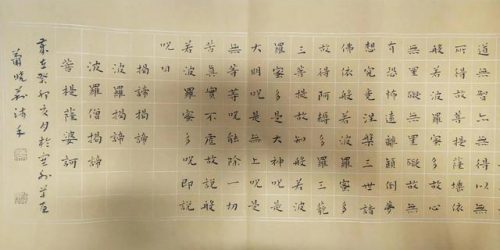 道無智亦無得以無
所得故菩提薩埵依
般若波羅蜜多故心
無罣礙無罣礙故無
有恐怖遠離顛倒夢
想究竟涅槃三世諸
佛依般若波羅蜜多
故得阿耨多羅三藐
三菩提故知般若波
羅蜜多是大神咒是
大明咒是無上咒是
無等等咒能除一切
苦真實不虛故說般
若波羅蜜多咒即說
咒曰
揭諦揭諦
波羅揭諦
波羅僧揭諦
菩提薩婆訶
在癸卯亥月於
蕭曉沐手